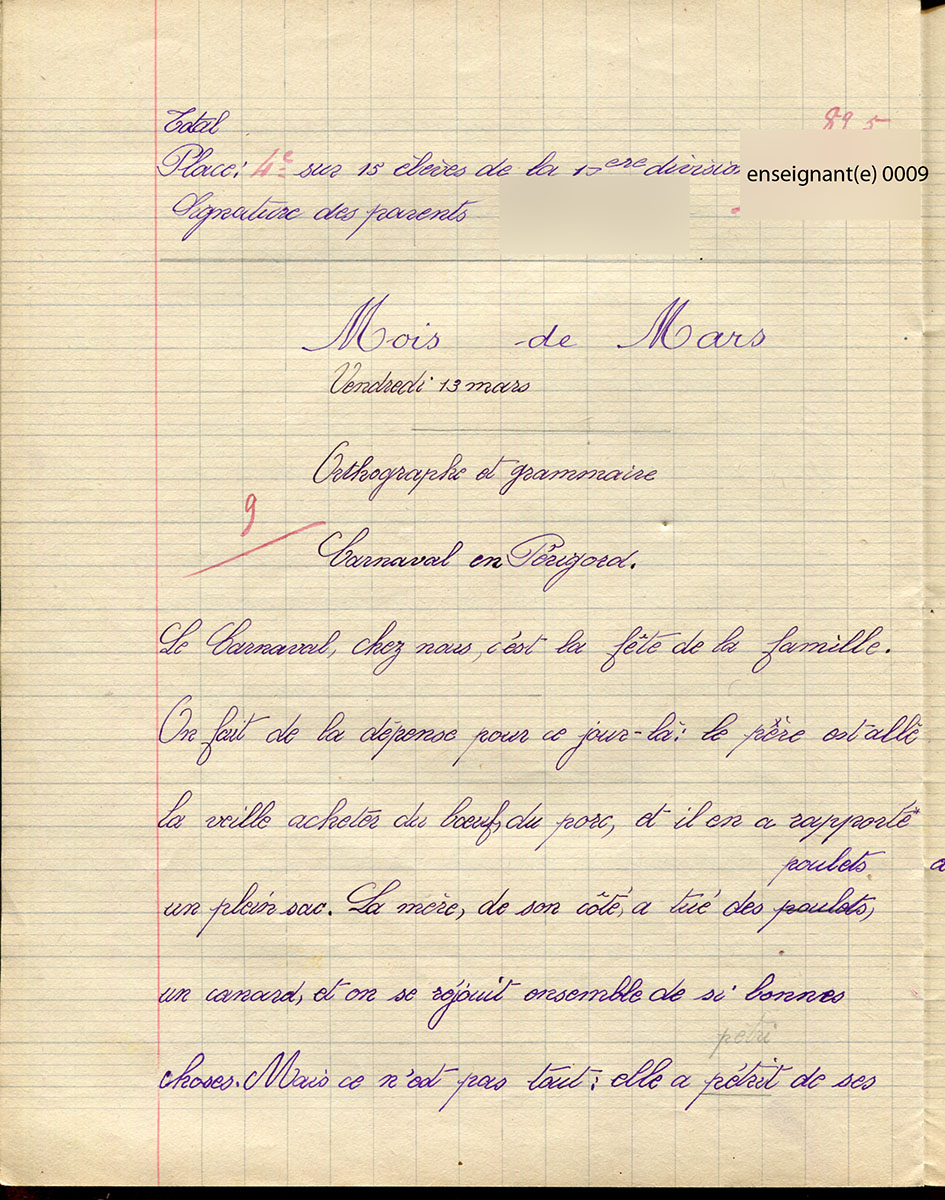 Total 89 5
Place: 4e sur 15 élèves de la 1ere divisio
enseignant(e) 0009
Signature des parents
Mois de Mars
Vendredi 13 mars
Orthographe et grammaire
9
Carnaval en Périgord.
Le Carnaval, chez nous, c'est la fête de la famille.
On fait de la dépense pour ce jour-là: le père est allé
la veille acheter du bœuf, du porc, et il en a rapporté
poulets
un plein sac. La mère, de son côté, a tué des poulots,
un canard, et on se réjouit ensemble de si bonnes
petri
choses. Mais ce n'est pas tout: elle a pétrit de ses